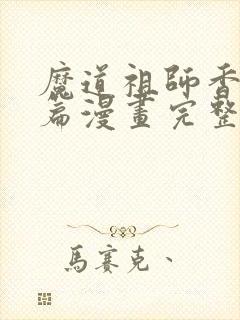 魔道祖師香
篇漫畫完整
馬賽克、